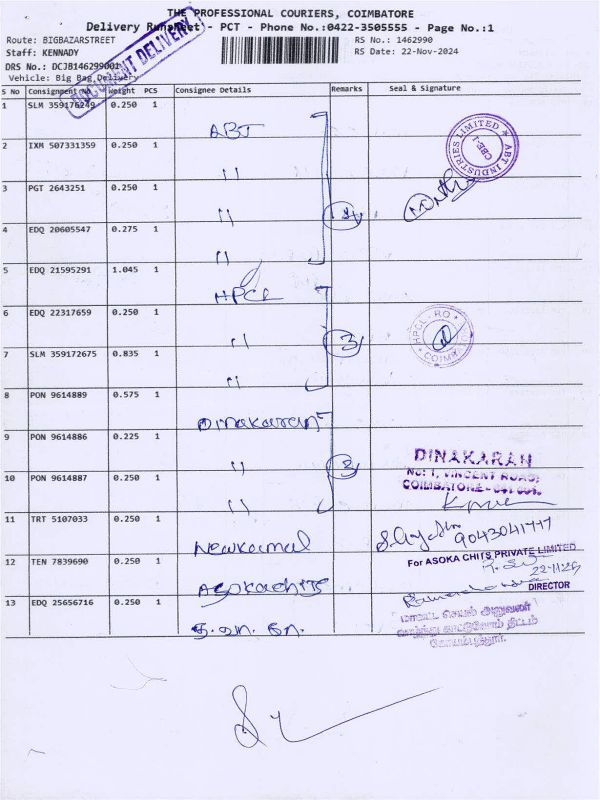 THE PROFESSIONAL COURIERS, COIMBATORE
Delivery Runsheet - PCT - Phone No.:0422-3505555 - Page No.:1
Route: BIGBAZARSTREET
RS No.: 1462990
Staff: KENNADY
RS Date: 22-Nov-2024
DRS No.: DCJB146299001
Vehicle: Big Bag Delivery
DOCUMENT DELIVERY
S No Consignment No Weight PCS Consignee Details Remarks Seal & Signature
1 SLM 359176249 0.250 1 ABT
ABT INDUSTRIES LIMITED
CBE-1
2 IXM 507331359 0.250 1 "
3 PGT 2643251 0.250 1 "
4 EDQ 20605547 0.275 1 "
5 EDQ 21595291 1.045 1 HPCL
6 EDQ 22317659 0.250 1 " 3
HPCL - RO
COIMB
7 SLM 359172675 0.835 1 "
8 PON 9614889 0.575 1 Dinakaran
9 PON 9614886 0.225 1 " 3
DINAKARAN
No: 1, VINCENT ROAD,
COIMBATORE - 641 001.
10 PON 9614887 0.250 1 "
11 TRT 5107033 0.250 1 Newkamal
9043041717
12 TEN 7839690 0.250 1 Asokachits
For ASOKA CHITS PRIVATE LIMITED
DIRECTOR
13 EDQ 25656716 0.250 1
மாவட்ட செயல் அலுவலர்
வாழ்ந்து காட்டுவோம் திட்டம்
கோயம்புத்தூர்.